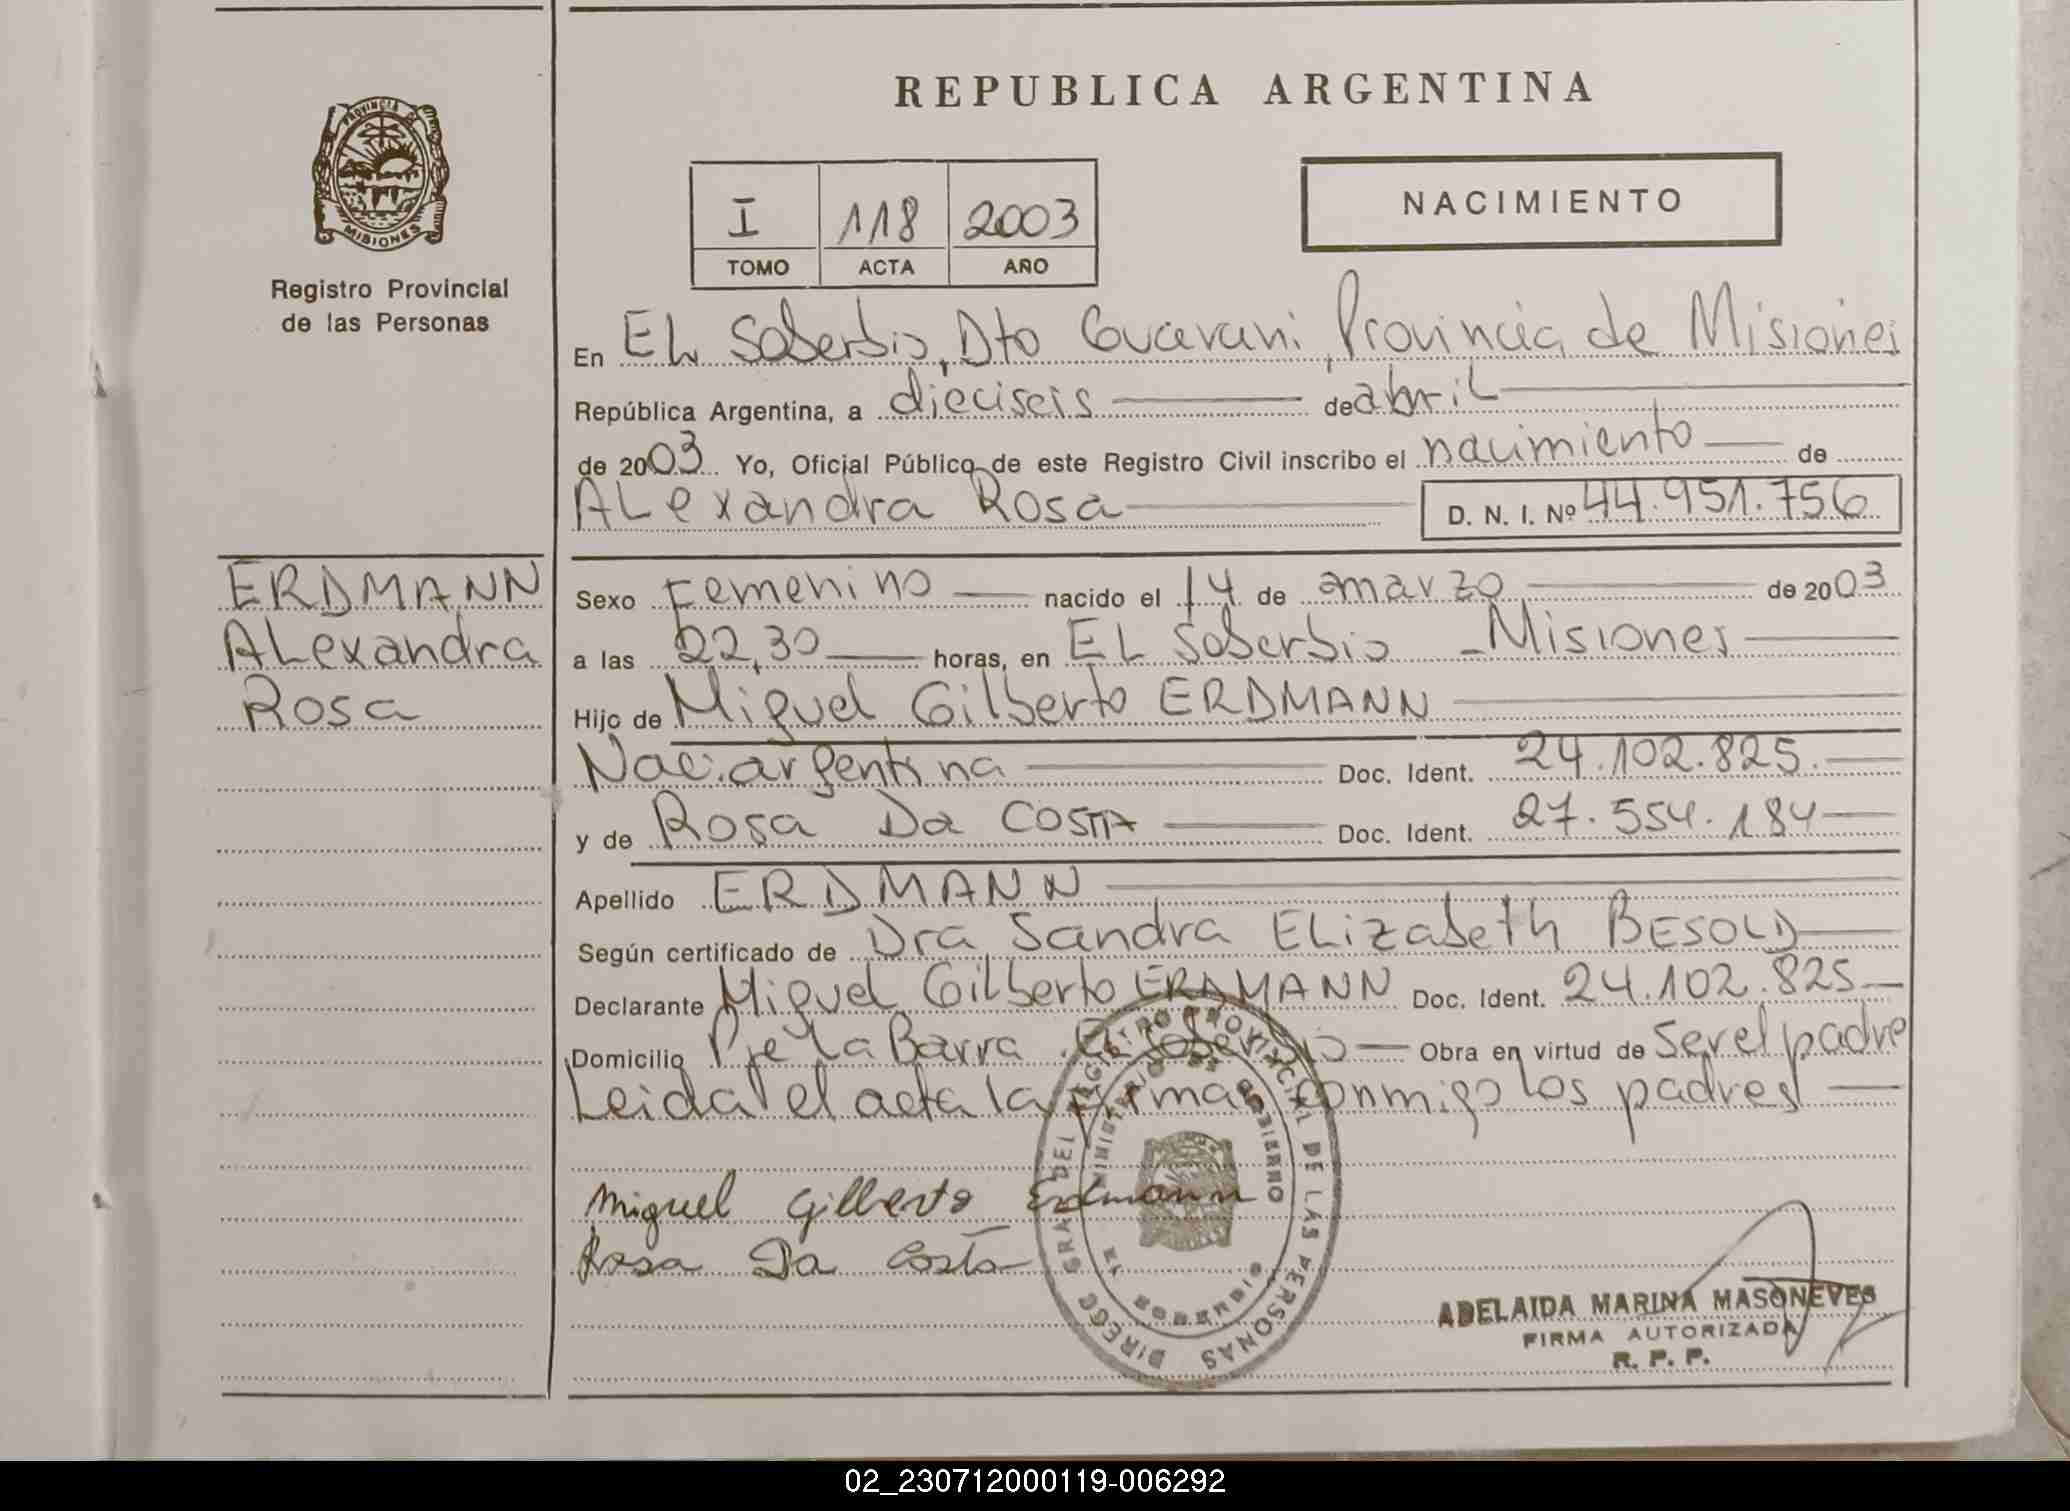 PROVINCIA DE
MISIONES
Registro Provincial
de las Personas
ERDMANN
ALexandra
Rosa
REPUBLICA ARGENTINA
I 118 2003
TOMO ACTA AÑO
NACIMIENTO
En EL Soberbio, Dto Guarani, Provincia de Misiones
República Argentina, a dieciseis de abril
de 2003 Yo, Oficial Público de este Registro Civil inscribo el nacimiento de
ALexandra Rosa D. N. I. Nº 44.951.756
Sexo Femenino nacido el 14 de marzo de 2003
a las 22,30 horas, en EL Soberbio - Misiones
Hijo de Miguel Gilberto ERDMANN
Nac. argentina Doc. Ident. 24.102.825.
y de Rosa Da COSTA Doc. Ident. 27.554.184
Apellido ERDMANN
Según certificado de Dra Sandra ELizabeth BESOLD
Declarante Miguel Gilberto ERDMANN Doc. Ident. 24.102.825
Domicilio Pje La Barra El Soberbio Obra en virtud de ser el padre
Leida el acta la firman conmigo los padres
Miguel Gilberto Erdmann
Rosa Da Costa
DIRECC GRAL DEL REGISTRO PROVINCIAL DE LAS PERSONAS
MINISTERIO DE GOBIERNO
EL SOBERBIO
ADELAIDA MARINA MASONEVES
FIRMA AUTORIZADA
R. P. P.
02_230712000119-006292